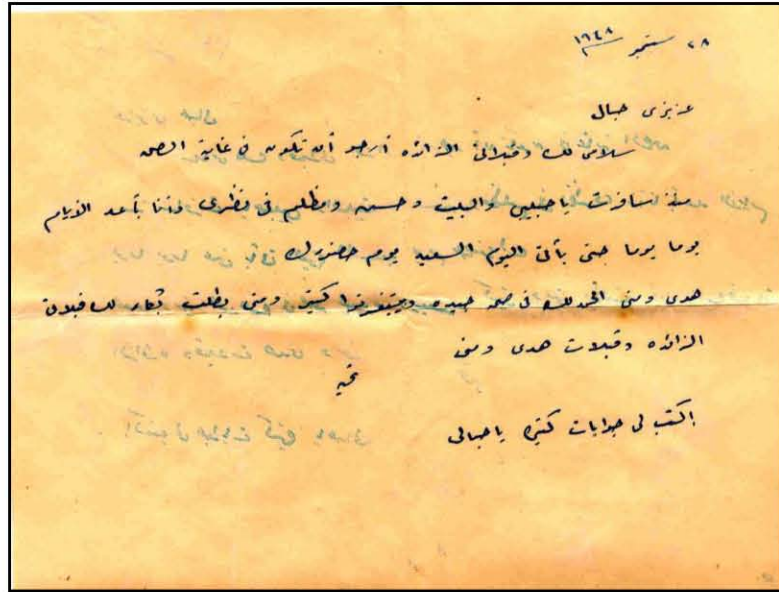 ٢٨ سبتمبر ١٩٤٨
عزيزى جمال
سلامى لك وقبلاتى الزائده أرجو أن تكون فى غاية الصحه
منذ سافرت يا حبيبى والبيت وحش ومظلم فى نظرى وأنا بأعد الأيام
يوما يوما حتى يأتى اليوم السعيد يوم حضورك
هدى ومنى الحمد لله فى صحه جيده ويتنفرزوا كتير ومنى بطلت بكار لك قبلاتى
الزائده وقبلات هدى ومنى
تحيه
اكتب لى جوابات كتيره يا جمالى